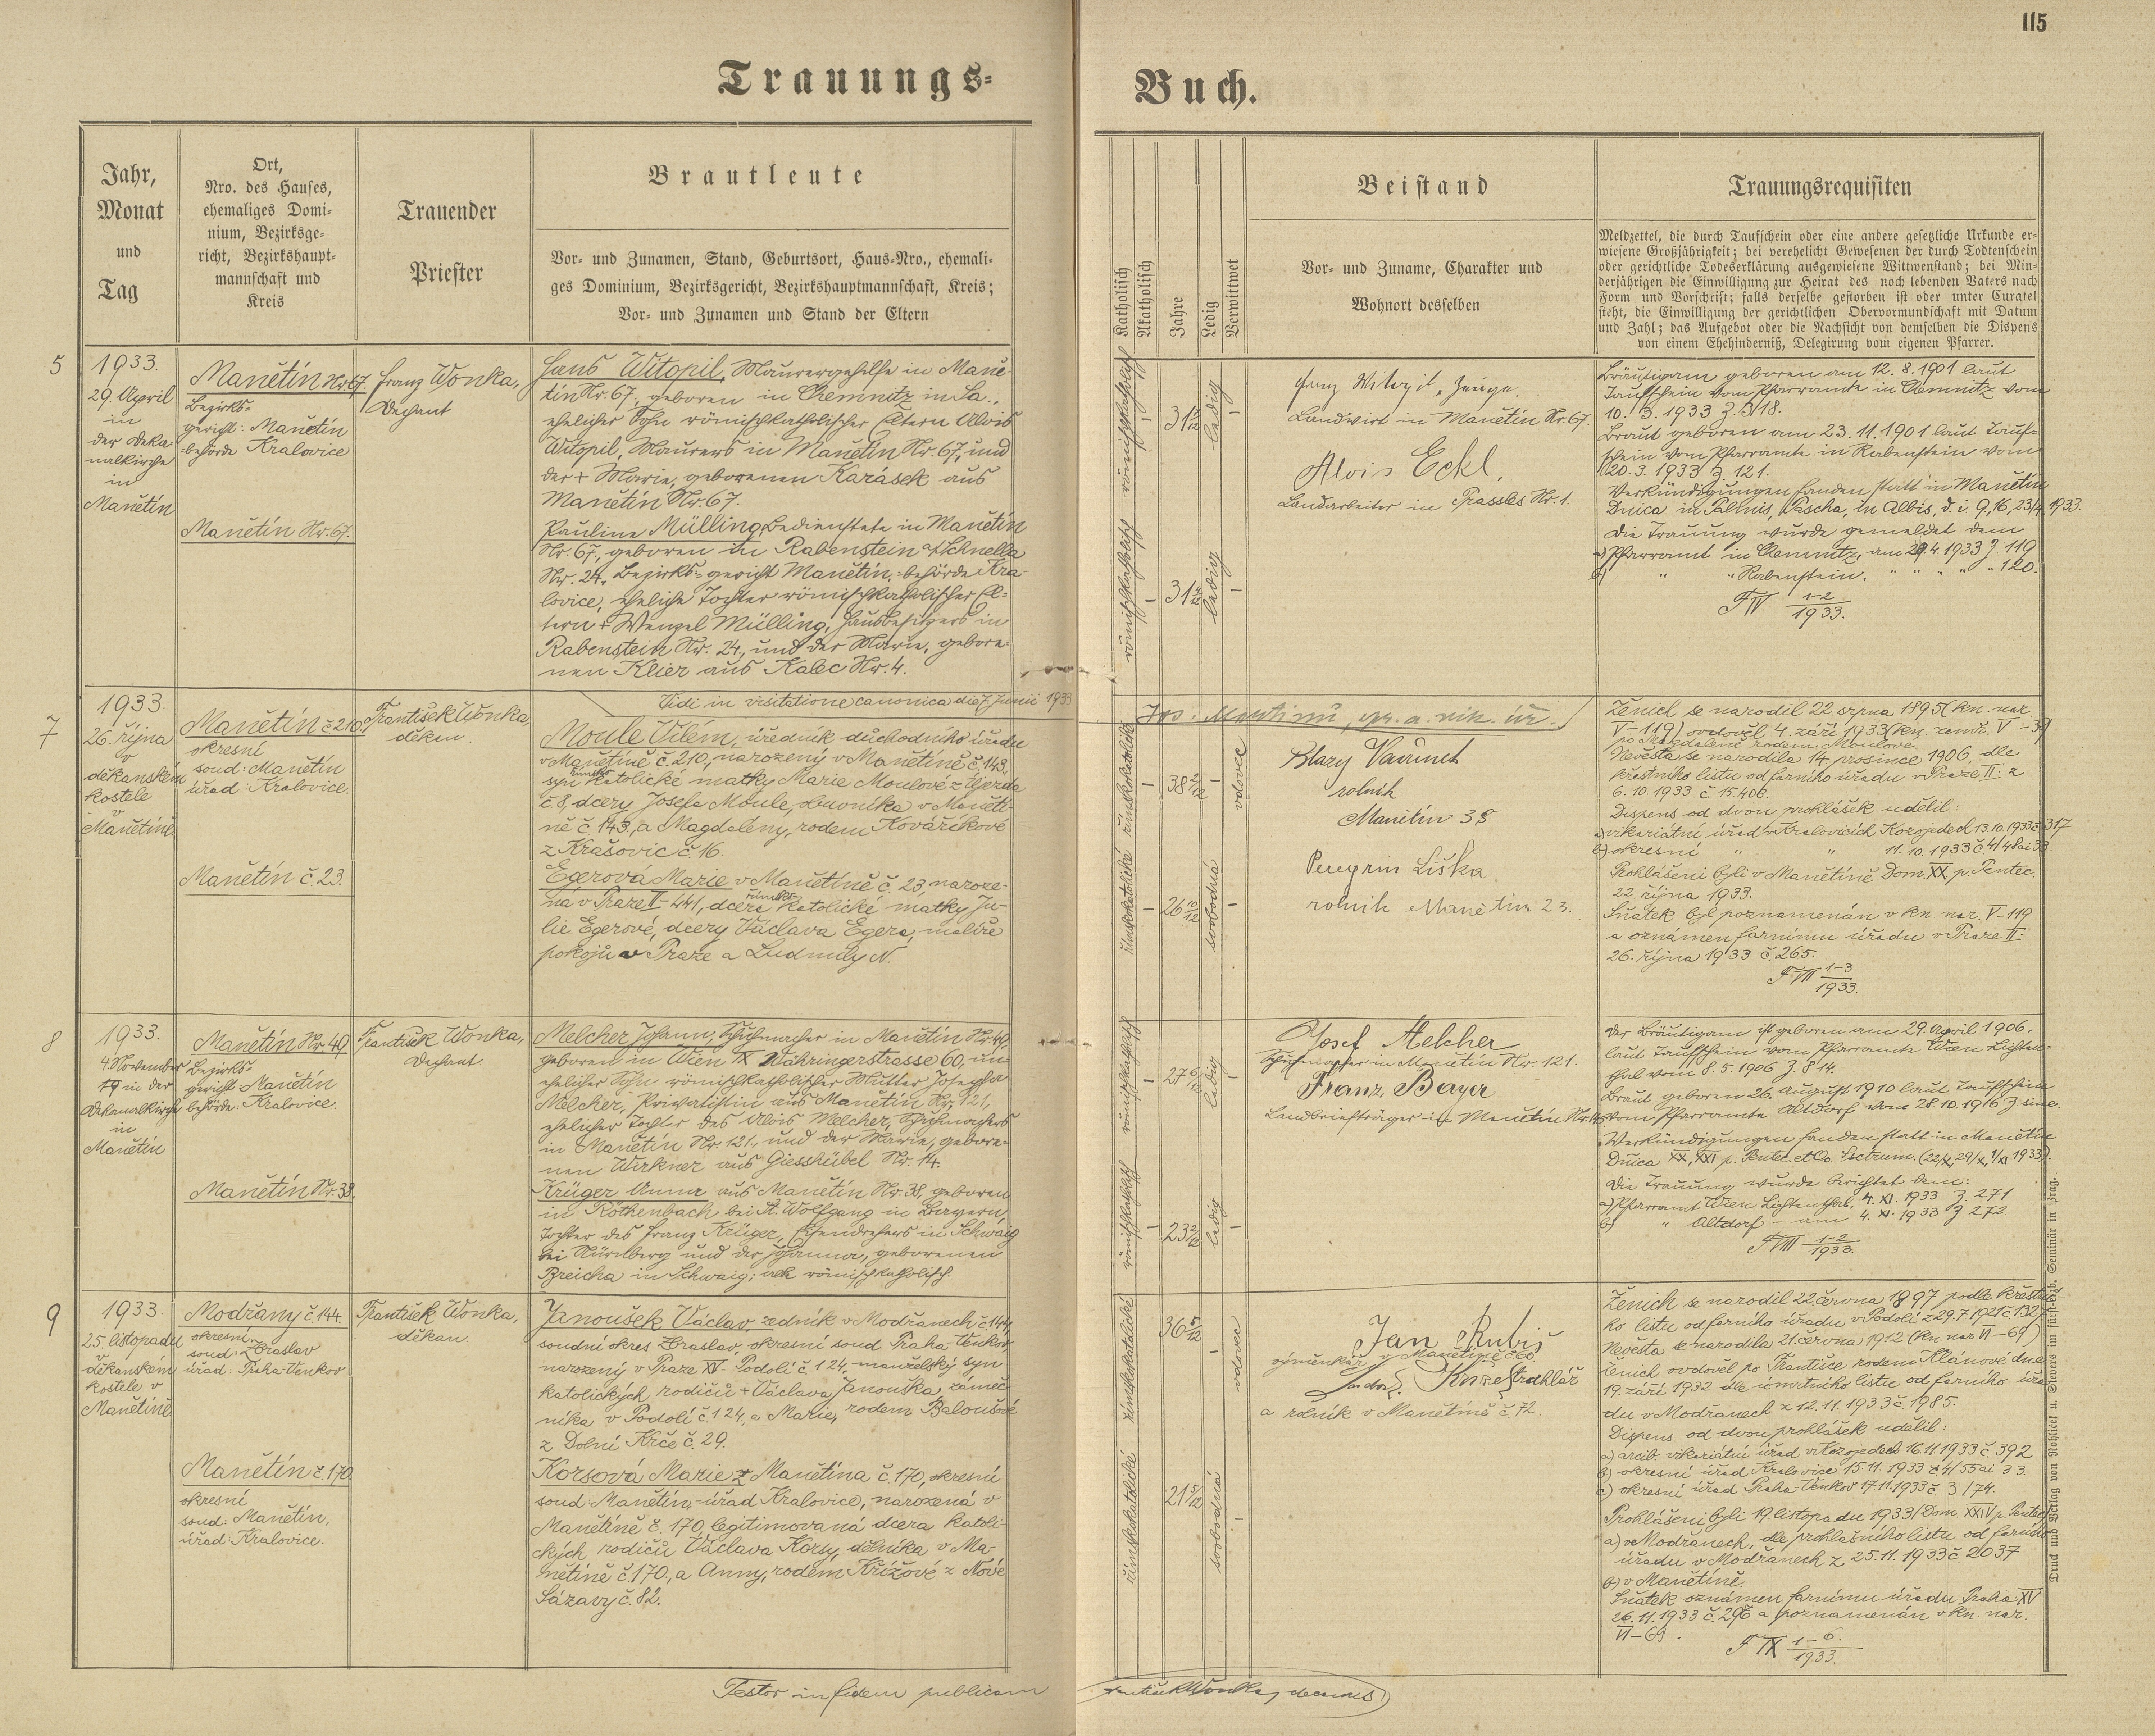 115
Trauungs-
Buch.
Jahr,
Monat
und
Tag
Ort,
Nro. des Hauses,
ehemaliges Domi-
nium, Bezirksge-
richt, Bezirkshaupt-
mannschaft und
Kreis
Trauender
Priester
Brautleute
Vor- und Zunamen, Stand, Geburtsort, Haus-Nro., ehemali-
ges Dominium, Bezirksgericht, Bezirkshauptmannschaft, Kreis;
Vor- und Zunamen und Stand der Eltern
Katholisch
Akatholisch
Jahre
Ledig
Verwittwet
Beistand
Vor- und Zuname, Charakter und
Wohnort desselben
Trauungsrequisiten
Meldzettel, die durch Taufschein oder eine andere gesetzliche Urkunde er-
wiesene Großjährigkeit; bei verehelicht Gewesenen der durch Todtenschein
oder gerichtliche Todeserklärung ausgewiesene Wittwenstand; bei Min-
derjährigen die Einwilligung zur Heirat des noch lebenden Vaters nach
Form und Vorschrift; falls derselbe gestorben ist oder unter Curatel
steht, die Einwilligung der gerichtlichen Obervormundschaft mit Datum
und Zahl; das Aufgebot oder die Nachsicht von demselben die Dispens
von einem Ehehinderniß, Delegirung vom eigenen Pfarrer.
5
1933.
29. April
in
der Deka-
nalkirche
in
Manětín
Manětín Nr. 67.
Bezirks-
gericht: Manětín
-behörde Kralovice
Manětín Nr. 67.
Franz Wonka,
Dechant
Hans Witopil, Maurergehilfe in Mane-
tín Nr. 67, geboren in Chemnitz in Sa.,
ehelicher Sohn römischkatholischer Eltern Alois
Witopil, Maurers in Manětín Nr. 67, und
der + Marie, geborenen Karásek aus
Manětín Nr. 67.
Pauline Mülling, Bedienstete in Manětín
Nr. 67, geboren in Rabenstein a/Schnella
Nr. 24, Bezirks-gericht Manětín, -behörde Kra-
lovice, eheliche Tochter römischkatholischer El-
tern + Wenzel Mülling, Hausbesitzers in
Rabenstein Nr. 24., und der Marie, gebore-
nen Klier aus Kalec Nr. 4.
römischkatholisch
31 ledig
römischkatholisch
31 ledig
Franz Witopil, Zeuge.
Landwirt in Manětín Nr. 67.
Alois Eckl.
Landarbeiter in Prassles Nr. 1.
Bräutigam geboren am 12. 8. 1901 laut
Taufschein vom Pfarramte in Chemnitz vom
10. 3. 1933 Z. 318.
Braut geboren am 23. 11. 1901 laut Tauf-
schein vom Pfarramte in Rabenstein vom
20. 3. 1933 Z. 121.
Verkündigungen fanden statt in Manětín
Dnica in Palmis, Pascha, in Albis, d. i. 9., 16., 23/4. 1933.
Die Trauung wurde gemeldet dem
a) Pfarramt in Chemnitz, am 29. 4. 1933 Z. 119
b) " " Rabenstein, " " " " 120.
F IV 1-2
1933.
Vidi in visitatione canonica die 7. Junii 1933
7
1933.
26. října
v
děkanském
kostele
v
Manětíně
Manětín č 210.
okresní
soud: Manětín
úřad: Kralovice.
Manětín č. 23.
František Wonka,
děkan.
Moule Vilém, úředník důchodního úřadu
v Manětíně č. 210, narozený v Manětíně č. 143,
syn římsko katolické matky Marie Moulové z Újezda
č 8, dcery Josefa Moule, dvorníka v Maněti-
ně č. 143, a Magdaleny, rodem Kováříkové
z Krašovic č. 16.
Egerová Marie v Manětíně č. 23, naroze-
ná v Praze II-441, dcera římsko katolické matky Ju-
lie Egerové, dcery Václava Egera, malíře
pokojů v Praze a Ludmily N.
římskokatolické
38 2/12 vdovec
římskokatolické
26 10/12 svobodná
rolník
Manětín 38
Peregrin Liška
rolník Manětín 23.
Ženich se narodil 22. srpna 1895 (kn. nar.
V-119) ovdověl 4. září 1933 (kn. zemř. V-39)
po Magdaleně rodem Moulové.
Nevěsta se narodila 14. prosince 1906, dle
křestního listu od farního úřadu v Praze II. z
6. 10. 1933 č 15406.
Dispens od dvou prohlášek udělil:
a) vikariátní úřad v Kralovicích Kozojedech 13. 10. 1933 č. 317
b) okresní " " 11. 10. 1933 č. 4/48 ai 33.
Prohlášeni byli v Manětíně Dom. XX. p. Pentec.
22. října 1933.
Sňatek byl poznamenán v kn. nar. V-119
a oznámen farnímu úřadu v Praze II.
26. října 1933 č. 265.
F VII 1-3
1933.
8
1933.
4. November
in der
Dekanalkirche
in
Manětín
Manětín Nr. 49
Bezirks-
gericht: Manětín
behörde: Kralovice.
Manětín Nr. 38.
František Wonka,
Dechant.
Melcher Johann, Schuhmacher in Manětín Nr. 49,
geboren in Wien IX Währingerstrasse 60, un-
ehelicher Sohn römischkatholischer Mutter Josepha
Melcher, Privatistin aus Manětín Nr. 121,
ehelicher Tochter des Alois Melcher, Schuhmachers
in Manětín Nr. 121., und der Marie, gebore-
nen Wirkner aus Giesshübel Nr. 14.
Krüger Anna aus Manětín Nr. 38, geboren
in Röthenbach bei St. Wolfgang in Bayern,
Tochter des Franz Krüger, Eisendrehers in Schwaig
bei Nürnberg und der Johanna, geborenen
Breicha in Schwaig; alle römischkatholisch.
römischkatholisch
27 6/12 ledig
römischkatholisch
23 2/12 ledig
Josef Melcher
Schuhmacher in Manětín Nr. 121.
Franz Bayer
Landbriefträger in Manětín
Der Bräutigam ist geboren am 29. April 1906.
laut Taufschein vom Pfarramte Wien Lichten-
thal vom 8. 5. 1906 Z. 814.
Braut geboren 26. August 1910 laut Taufschein
vom Pfarramte Altdorf vom 28. 10. 1916 Z sine.
Verkündigungen fanden statt in Manětín
Dnica XX, XXI p. Pentec. et Oo. Sanctorum. (22/X, 29/X, 1/XI 1933).
Die Trauung wurde berichtet dem:
a) Pfarramt Wien Lichtenthal, 4. XI. 1933 Z. 271
b) " Altdorf - am 4. XI. 1933 Z 272.
F VIII 1-2
1933.
9
1933.
25. listopadu
v
děkanském
kostele v
Manětíně
Modřany č 144.
okresní
soud: Zbraslav
úřad: Praha-Venkov
Manětín č. 170
okresní
soud: Manětín,
úřad: Kralovice.
František Wonka,
děkan.
Janoušek Václav, zedník v Modřanech č. 144,
soudní okres Zbraslav, okresní soud Praha-Venkov
narozený v Praze XV- Podolí č. 124, manželský syn
katolických rodičů + Václava Janouška, zámeč-
níka v Podolí č. 124, a Marie, rodem Baloušové
z Dolní Krče č. 29.
Korsová Marie z Manětína č. 170, okresní
soud Manětín, -úřad Kralovice, narozená v
Manětíně č. 170, legitimovaná dcera katoli-
ckých rodičů Václava Korsy, dělníka v Ma-
nětíně č. 170, a Anny, rodem Křížové z Nové
Sázavy č. 82.
římskokatolické
36 5/12 vdovec
římskokatolické
21 5/12 svobodná
Jan Rubiš
výměnkář v Manětíně č 60.
truhlář
a rolník v Manětíně č 72.
Ženich se narodil 22. června 1897 podle křestní-
ho listu od farního úřadu v Podolí z 29. 7. 1921 č. 1327.
Nevěsta se narodila 21. června 1912 (kn. nar VI-69)
ženich ovdověl po Františce rodem Klánové dne
19. září 1932 dle úmrtního listu od farního úřa-
du v Modřanech z 12. 11. 1933 č. 1985.
Dispens od dvou prohlášek udělil:
a) arcib. vikariátní úřad v Kozojedech 16. 11. 1933 č. 392
b) okresní úřad Kralovice 15. 11. 1933 č. 4/55 ai 33.
c) okresní úřad Praha-Venkov 17. 11. 1933 č. 3/74.
Prohlášeni byli 19. listopadu 1933 (Dom. XXIV p. Pentec.)
a) v Modřanech, dle prohlášního listu od farního
úřadu v Modřanech z 25. 11. 1933 č. 2037
b) v Manětíně.
Sňatek oznámen farnímu úřadu Praha XV
26. 11. 1933 č. 296 a poznamenán v kn. nar.
VI-69.
F IX 1-6.
1933.
Testor in fidem publicam
František Wonka, decanus